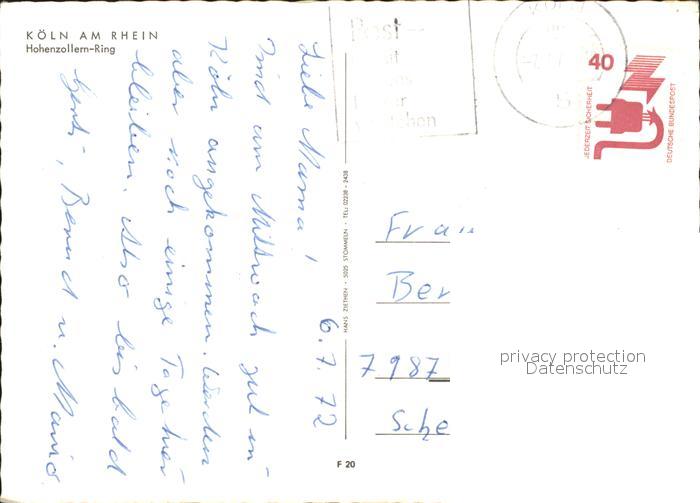 KÖLN AM RHEIN
Hohenzollern-Ring
6.7.72
Liebe Mama!
Sind am Mittwoch gut in
Köln angekommen. Werden
aber noch einige Tage hier
bleiben. Also bis bald
Bernd u. Mario
HANS ZIETHEN · 5025 STOMMELN · TEL: 02238 - 2438
F 20
Post—
40
JEDERZEIT SICHERHEIT
DEUTSCHE BUNDESPOST
Frau
Ber
7987
privacy protection
Datenschutz